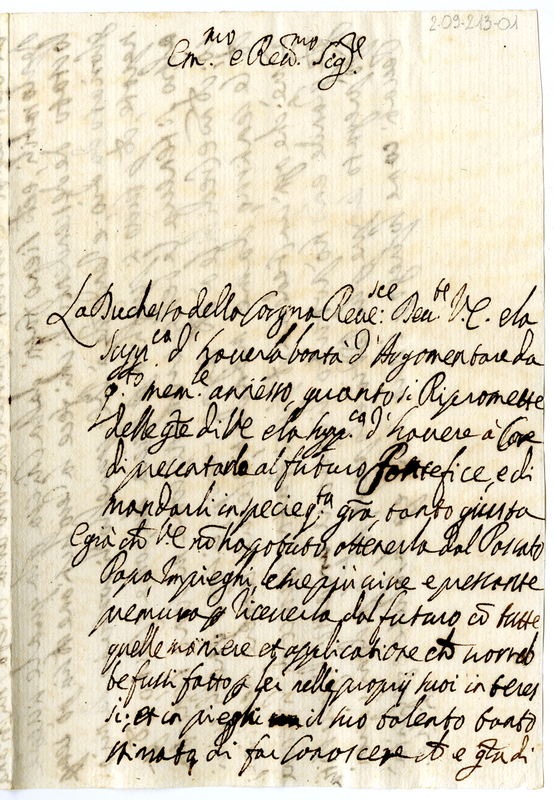 2-09-213-01
Em.mo e Reu.mo Sig.re
La Duchessa della Corgna Reue:sce Deu.te V.E. e la
supp.ca d'hauer la bontà d'Argomentare da
q.sto mem.le annesso, quanto si Ripromette
delle gte di VE e la supp.ca d'hauere à Core
di presentarlo al futuro Pontefice, e di
mandarli in specie q.ta gra, tanto giusta
E già ch VE nō ha potuto ottenerla dal Passato
Papa Impieghi le sue più uiue e pressante
premura p riceuerla dal futuro cō tutte
quelle maniere et applicatione ch uorreb
be fussi fatto p lei nelli proprij suoi interes
si; et in pieghi il suo talento tanto
stimato di far Conoscere ch e gta di